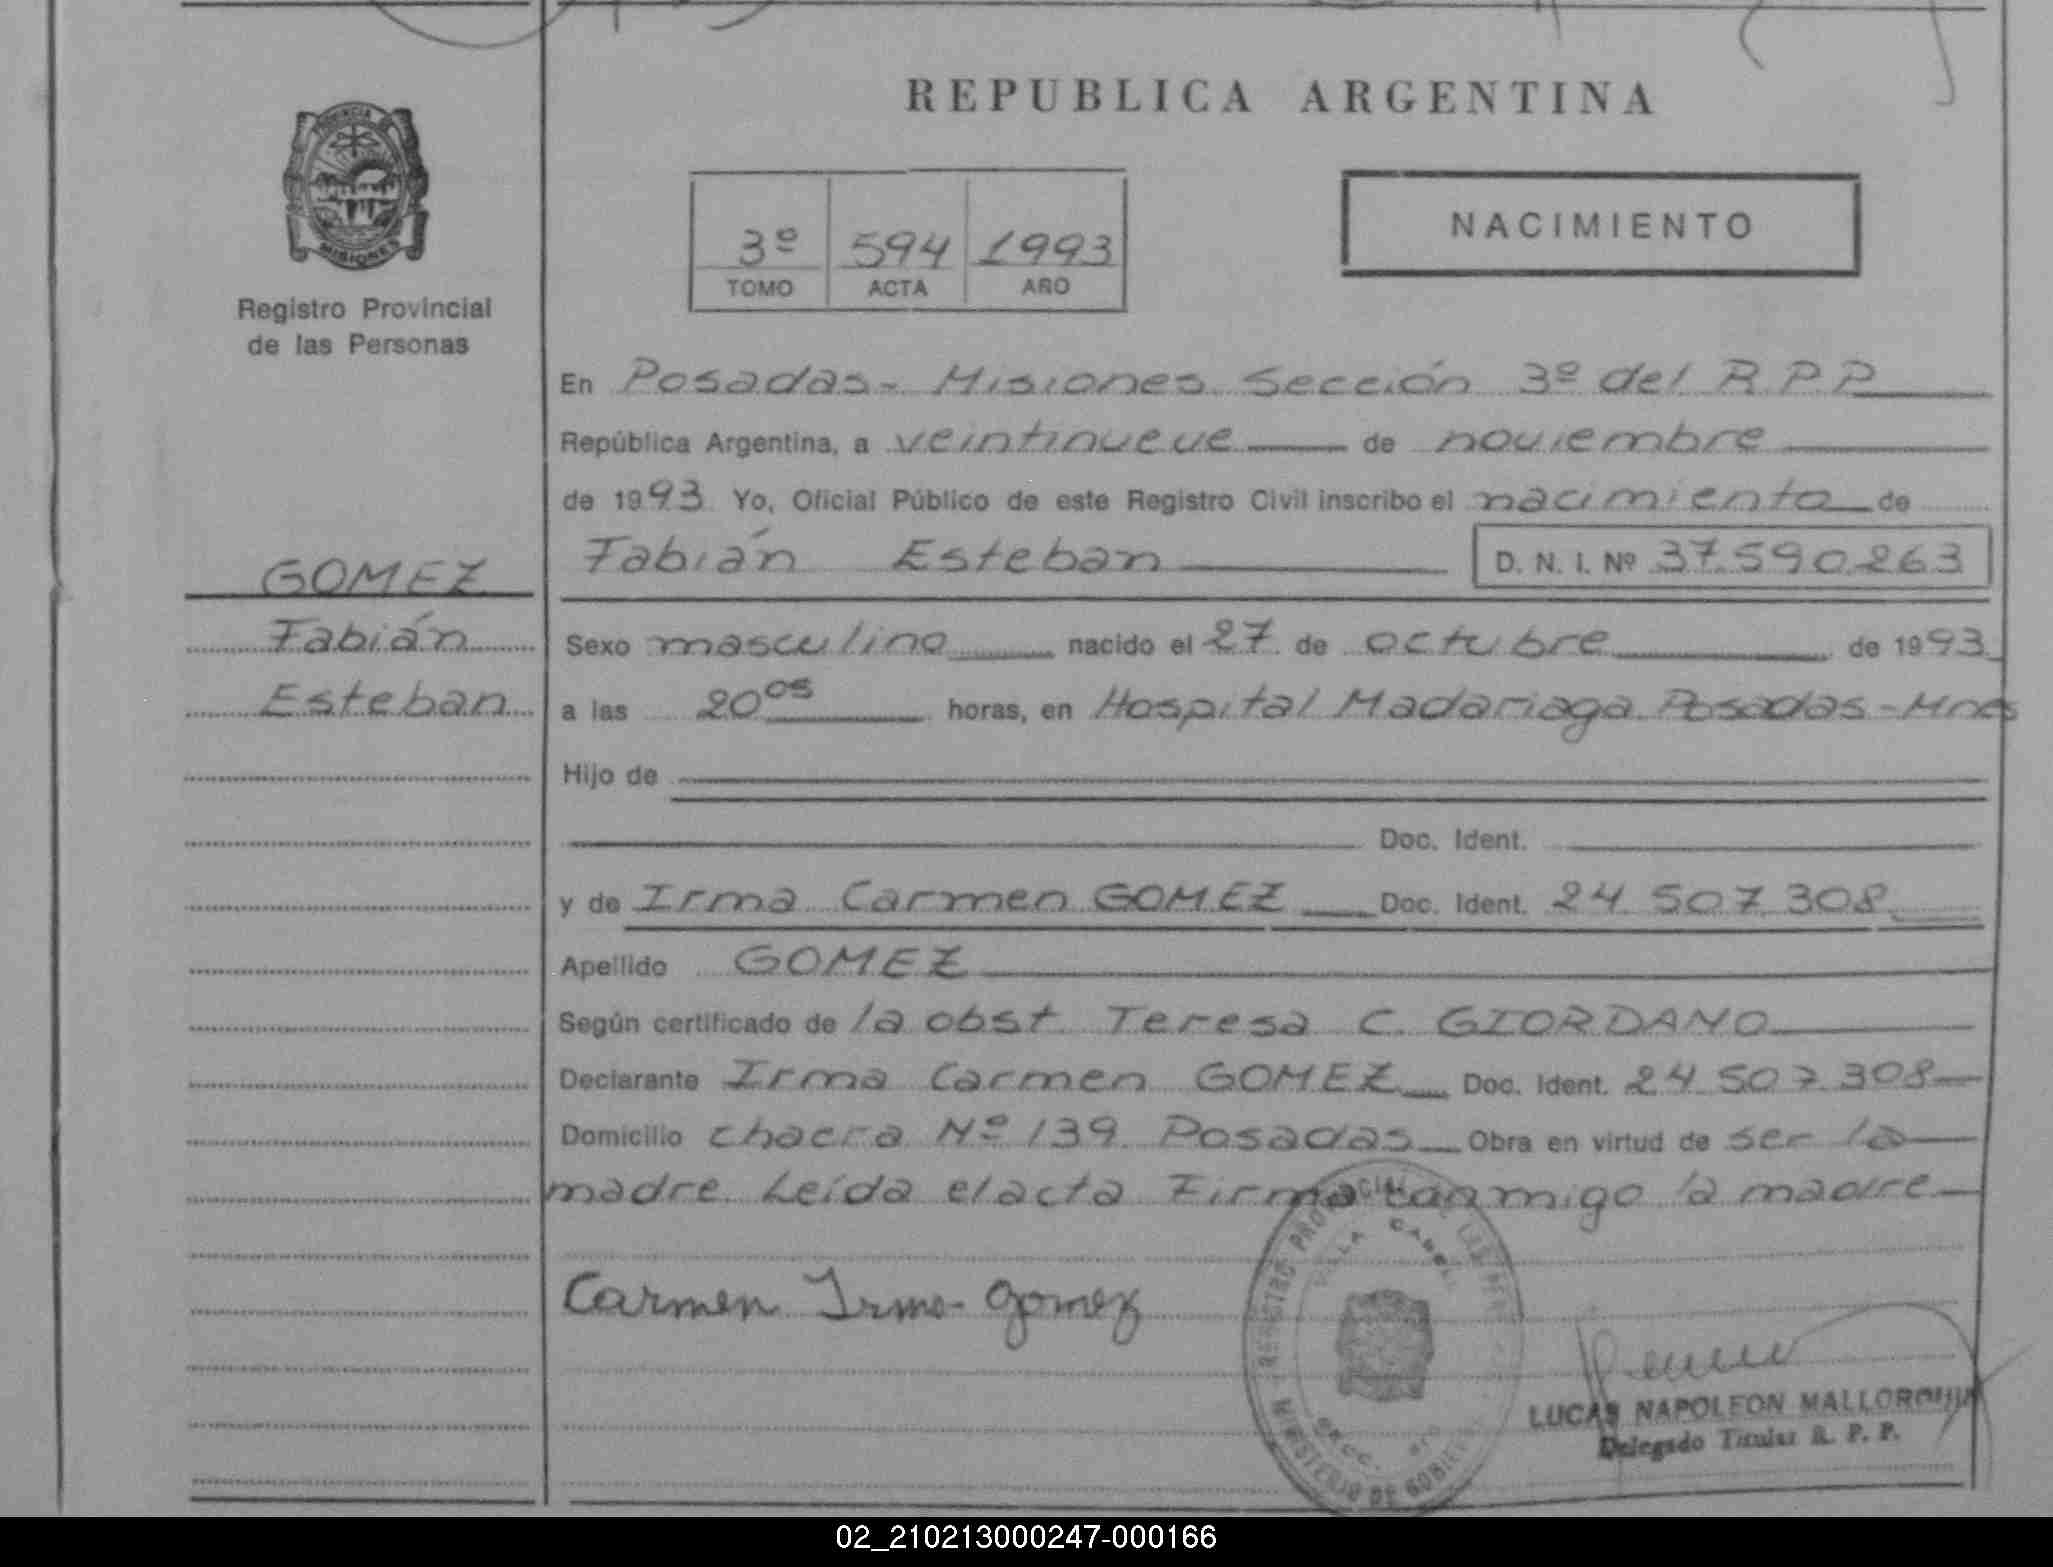 REPUBLICA ARGENTINA
PROVINCIA
MISIONES
Registro Provincial
de las Personas
3º 594 1993
TOMO ACTA AÑO
NACIMIENTO
En Posadas - Misiones Sección 3º del R.P.P
República Argentina, a veintinueve de noviembre
de 1993 Yo, Oficial Público de este Registro Civil inscribo el nacimiento de
Fabián Esteban D. N. I. Nº 37.590.263
GOMEZ
Fabián
Esteban
Sexo masculino nacido el 27 de octubre de 1993
a las 20 05 horas, en Hospital Madariaga Posadas - Mnes
Hijo de
Doc. Ident.
y de Irma Carmen GOMEZ Doc. Ident. 24 507 308
Apellido GOMEZ
Según certificado de la obst Teresa C. GIORDANO
Declarante Irma Carmen GOMEZ Doc. Ident. 24 507 308
Domicilio chacra Nº 139 Posadas Obra en virtud de ser la
madre Leída el acta Firma conmigo la madre
Carmen Irma Gomez
REGISTRO
VILLA
MINISTERIO DE
LUCAS NAPOLEON MALLORQUIN
Delegado Titular R. P. P.
02_210213000247-000166